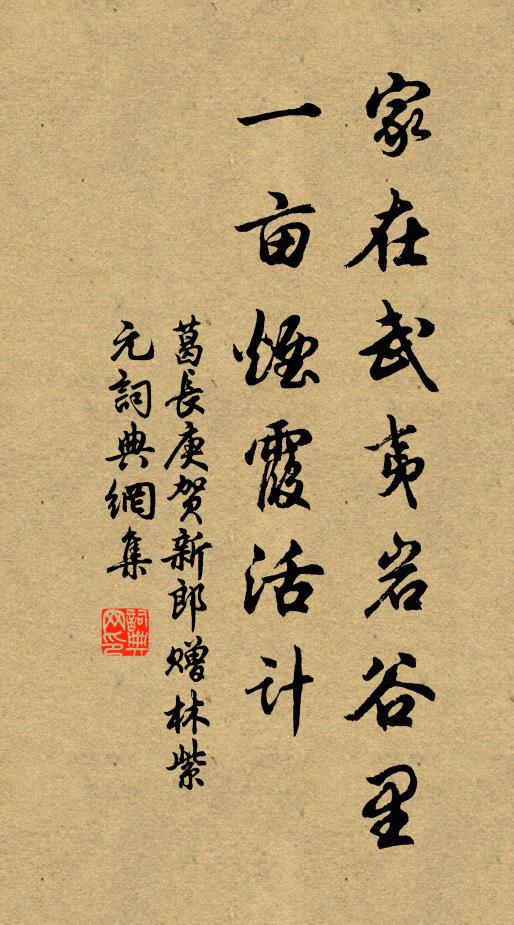 家在武夷岩谷里
一亩煙霞活计
葛長庚贺新郎赠林紫
元詞典網集
詞典网印